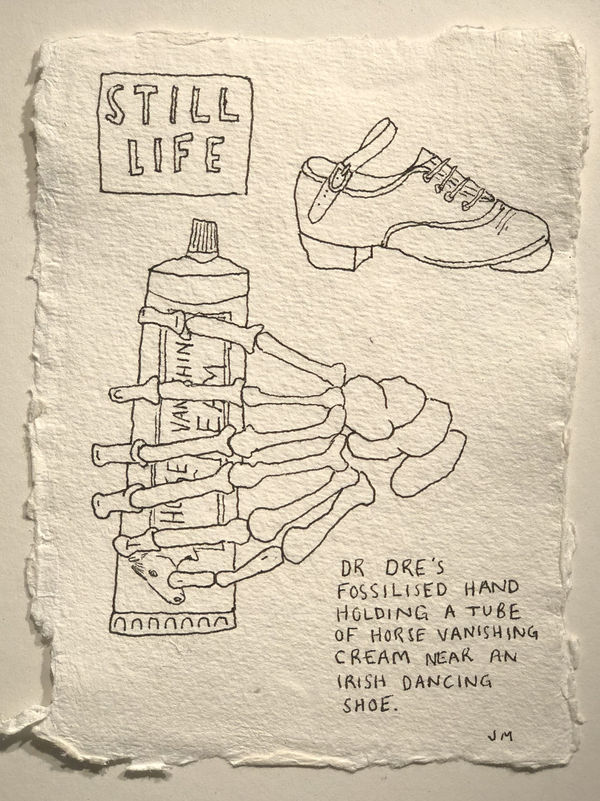 STILL
LIFE
VANISHING
HORSE
DR DRE'S
FOSSILISED HAND
HOLDING A TUBE
OF HORSE VANISHING
CREAM NEAR AN
IRISH DANCING
SHOE.
JM